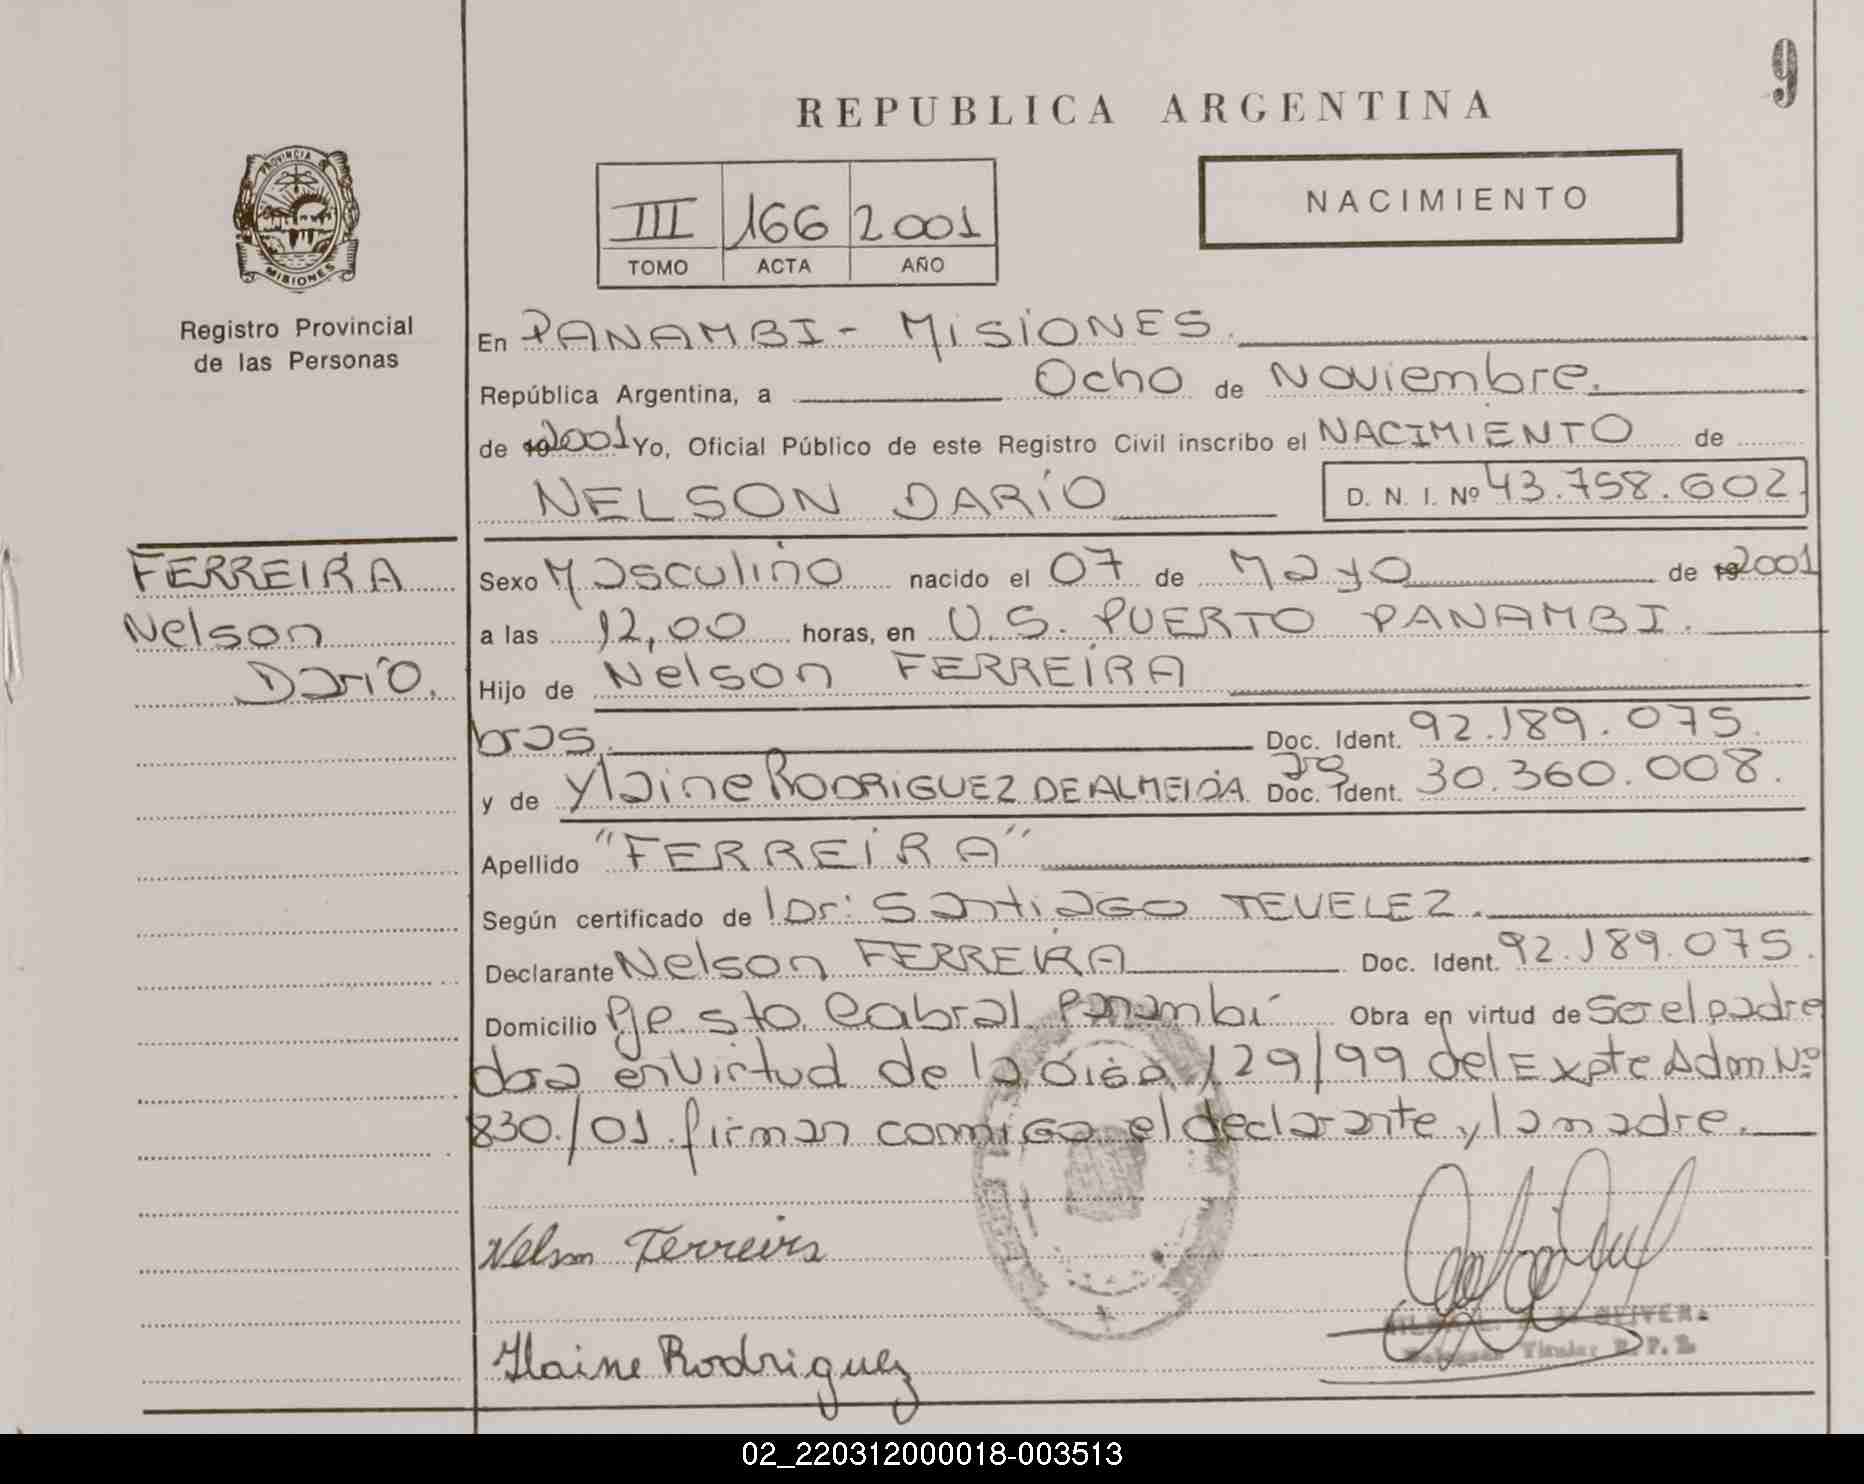 9
REPUBLICA ARGENTINA
PROVINCIA DE
MISIONES
Registro Provincial
de las Personas
III 166 2001
TOMO ACTA AÑO
NACIMIENTO
En PANAMBI - MISIONES.
República Argentina, a Ocho de Noviembre.
de 2001 Yo, Oficial Público de este Registro Civil inscribo el NACIMIENTO de
NELSON DARÍO D. N. I. Nº 43.758.602.
FERREIRA
Nelson
Darío.
Sexo Masculino nacido el 07 de Mayo de 2001
a las 12,00 horas, en U.S. PUERTO PANAMBI.
Hijo de Nelson FERREIRA
bras. Doc. Ident. 92.189.075.
y de Ylaine RODRIGUEZ DE ALMEIDA arg Doc. Ident. 30.360.008.
Apellido "FERREIRA"
Según certificado de Dr: Santiago TEVELEZ.
Declarante Nelson FERREIRA Doc. Ident. 92.189.075.
Domicilio Pje. Sto. Cabral Panambí Obra en virtud de Ser el padre
en virtud de la 129/99 del Expte Adm Nº
830/01. firman conmigo el declarante y la madre.
Nelson Ferreira
Ylaine Rodriguez
OLIVERA
Titular R. P.
02_220312000018-003513